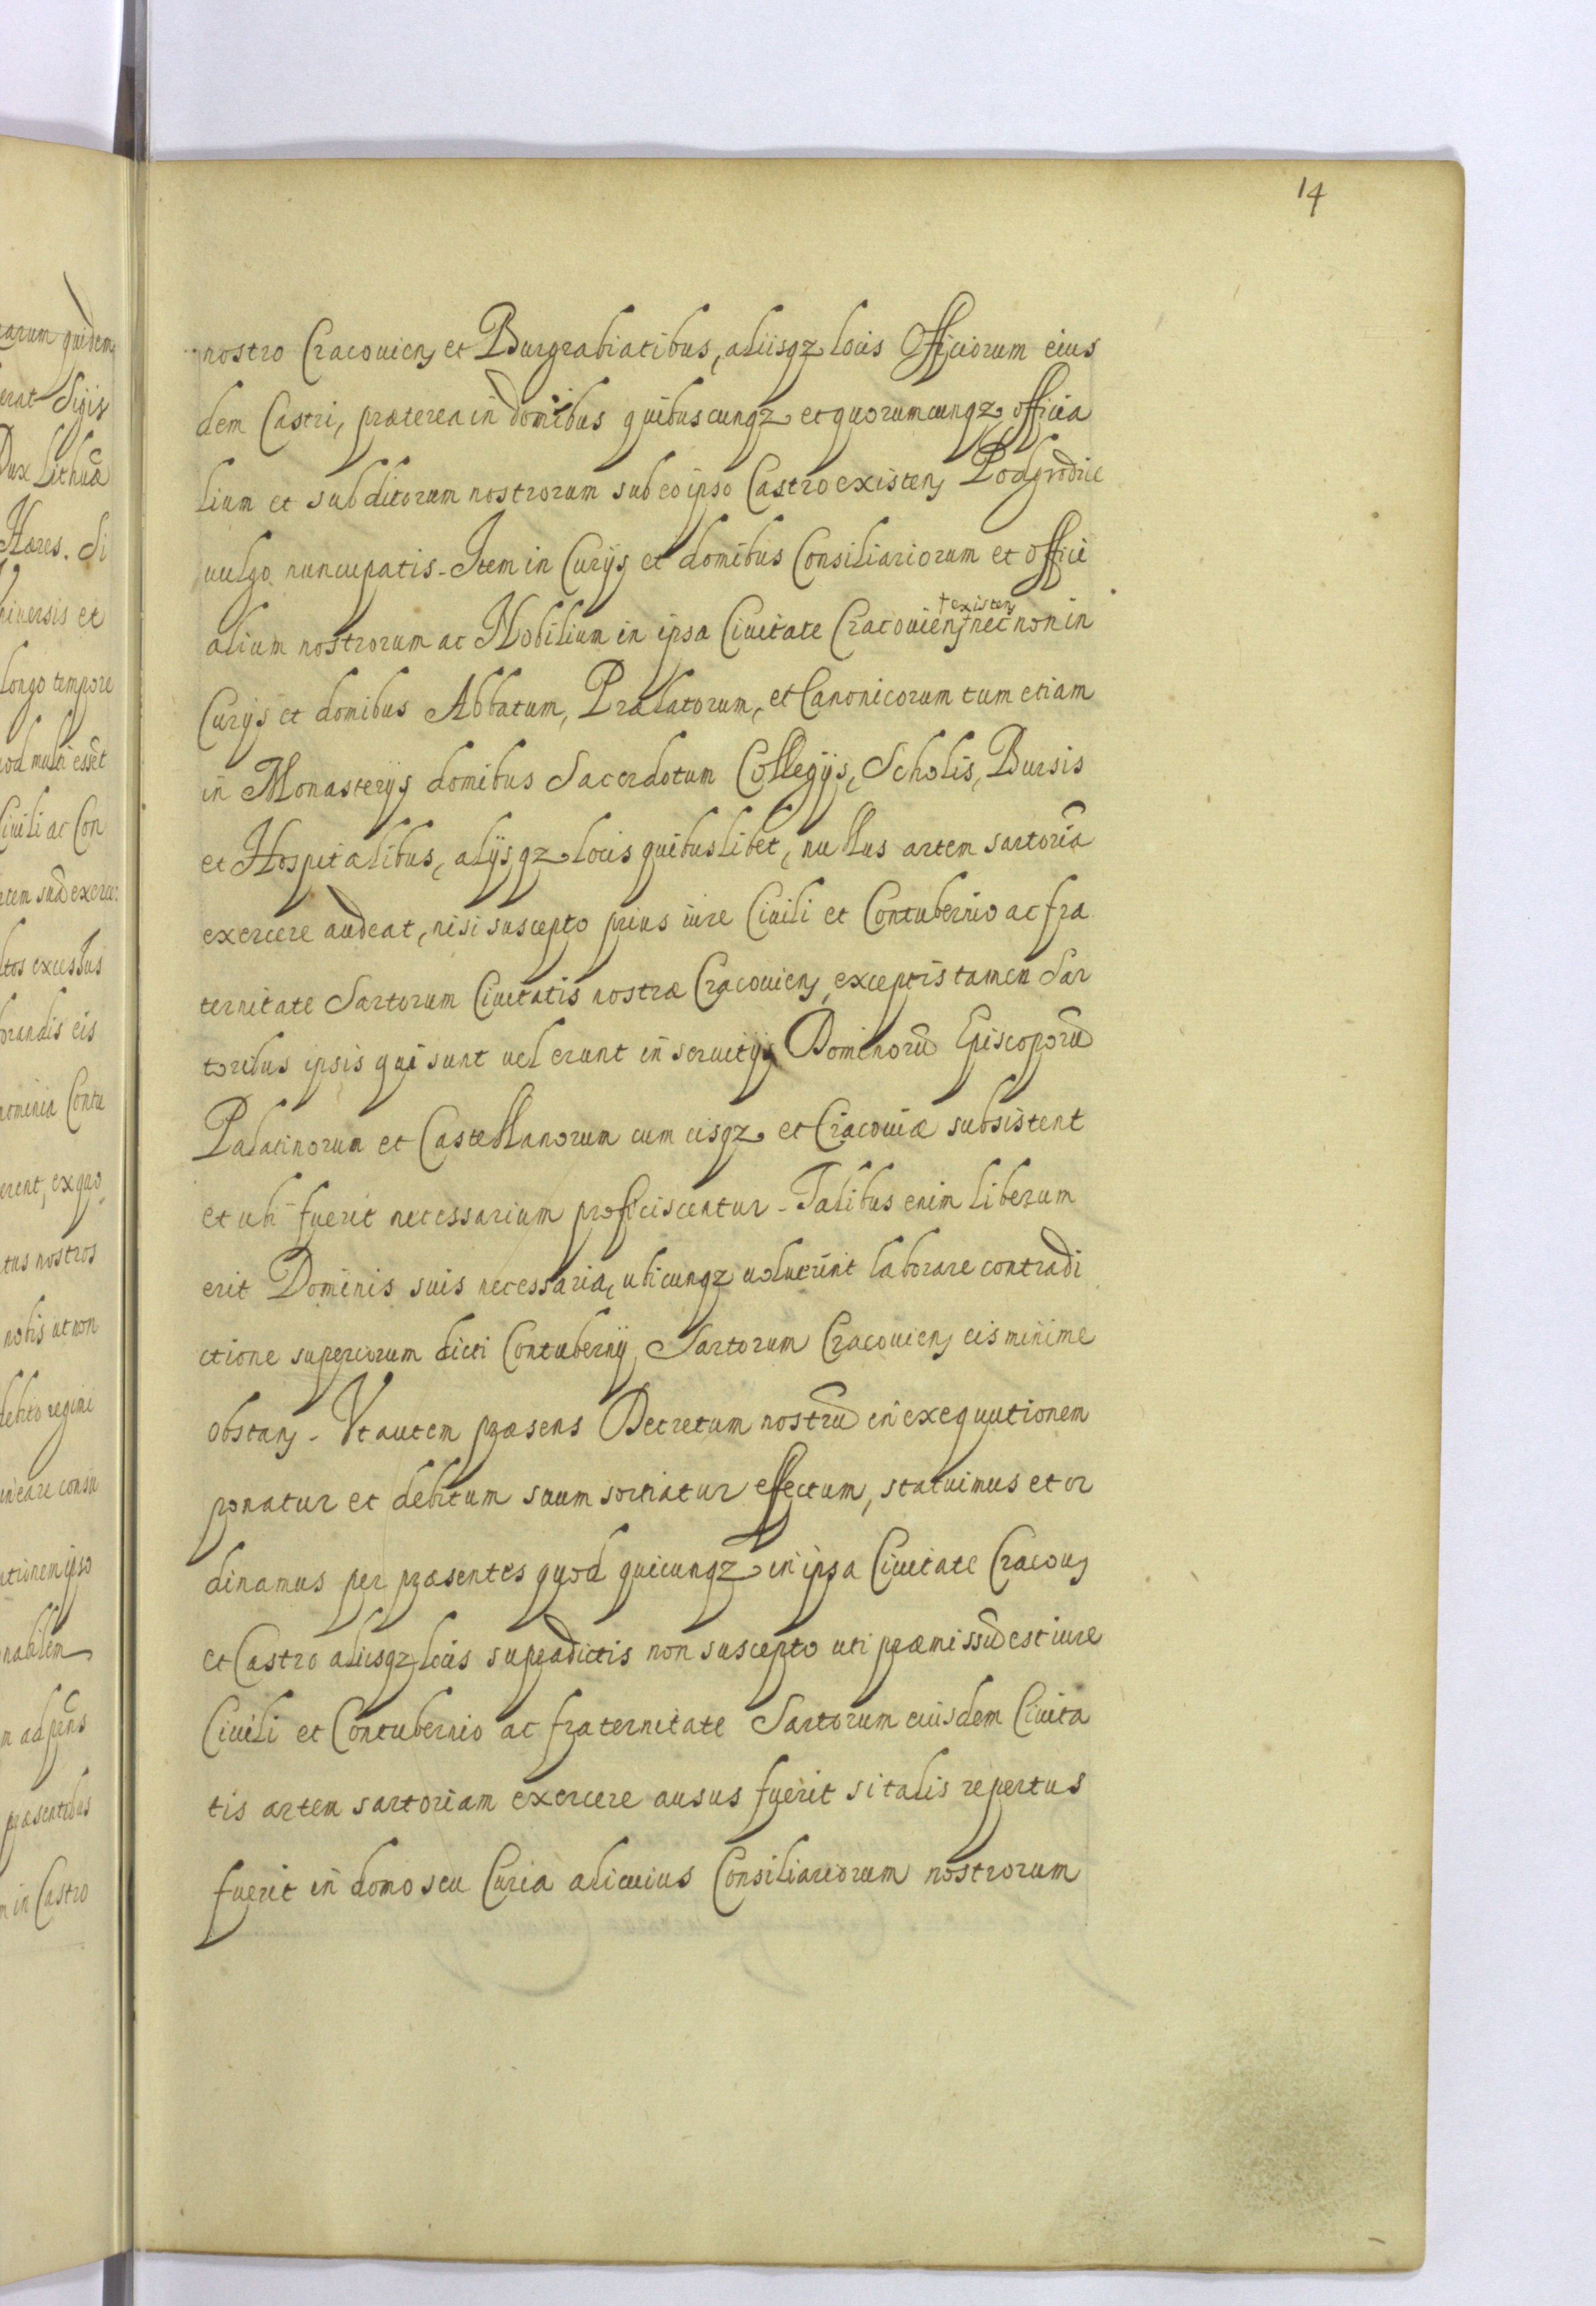 14
nostro Cracouien et Burgrabiatibus, aliisqz locis Officiorum eius
dem Castri, præterea in domibus quibuscunqz et quorumcunqz officia
lium et subditorum nostrorum sub eo ipso Castro existen Podgrodzie
uulgo nuncupatis - Item in Curÿs et domibus Consiliariorum et offici
alium nostrorum ac Nobilium in ipsa Ciuitate Cracouien † existen nec non in
Curÿs et domibus Abbatum, Prælatorum, et Canonicorum tum etiam
in Monasterÿs domibus Sacerdotum Collegÿs, Scholis, Bursis
et Hospitalibus, alÿsqz locis quibuslibet, nullus artem sartoriã
exercere audeat, nisi suscepto prius iure Ciuili et Contubernio ac fra
ternitate Sartorum Ciuitatis nostræ Cracouien, exceptis tamen Sar
toribus ipsis qui sunt uel erunt in seruitÿs Dominorũ Episcoporũ
Palatinorum et Castellanorum cum eisqz et Cracouiæ subsistent
et ubi fuerit necessarium proficiscentur - Talibus enim liberum
erit Dominis suis necessaria, ubicunqz uoluerint laborare contradi
ctione superiorum dicti Contubernÿ Sartorum Cracouien eis minime
obstan - Vt autem præsens Decretum nostrũ in exequutionem
ponatur et debitum suum sortiatur effectum, statuimus et or
dinamus per præsentes quod quicunqz in ipsa Ciuitate Cracou
et Castro aliisqz locis supradictis non suscepto uti præmissũ est iure
Ciuili et Contubernio ac fraternitate Sartorum eiusdem Ciuita
tis artem sartoriam exercere ausus fuerit si talis repertus
fuerit in domo seu Curia alicuius Consiliariorum nostrorum
quidem
erat Sigis
Dux Lithuæ
Hæres. Si
niuersis et
longo tempore
multi essẽt
Ciuili ac Con
excessus
eis
Contu
erent, ex quo
tus nostros
nobis ut non
debito regimi
consu
ationem ipso
nabilem
præsentibus
in Castro